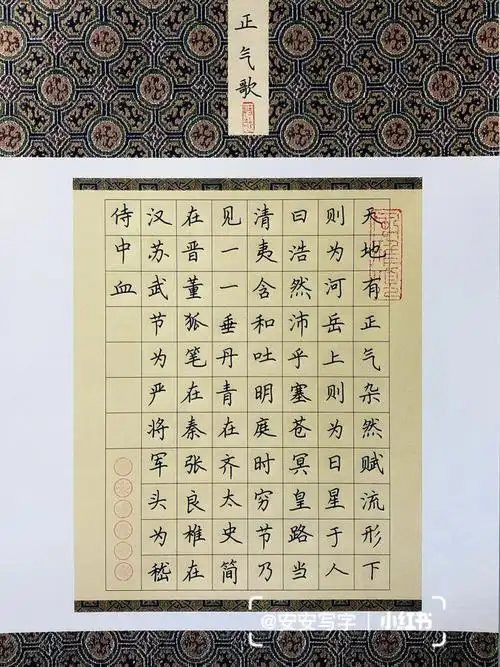 正气歌
天地有正气杂然赋流形下
则为河岳上则为日星于人
曰浩然沛乎塞苍冥皇路当
清夷含和吐明庭时穷节乃
见一一垂丹青在齐太史简
在晋董狐笔在秦张良椎在
汉苏武节为严将军头为嵇
侍中血
@安安写字 小红书